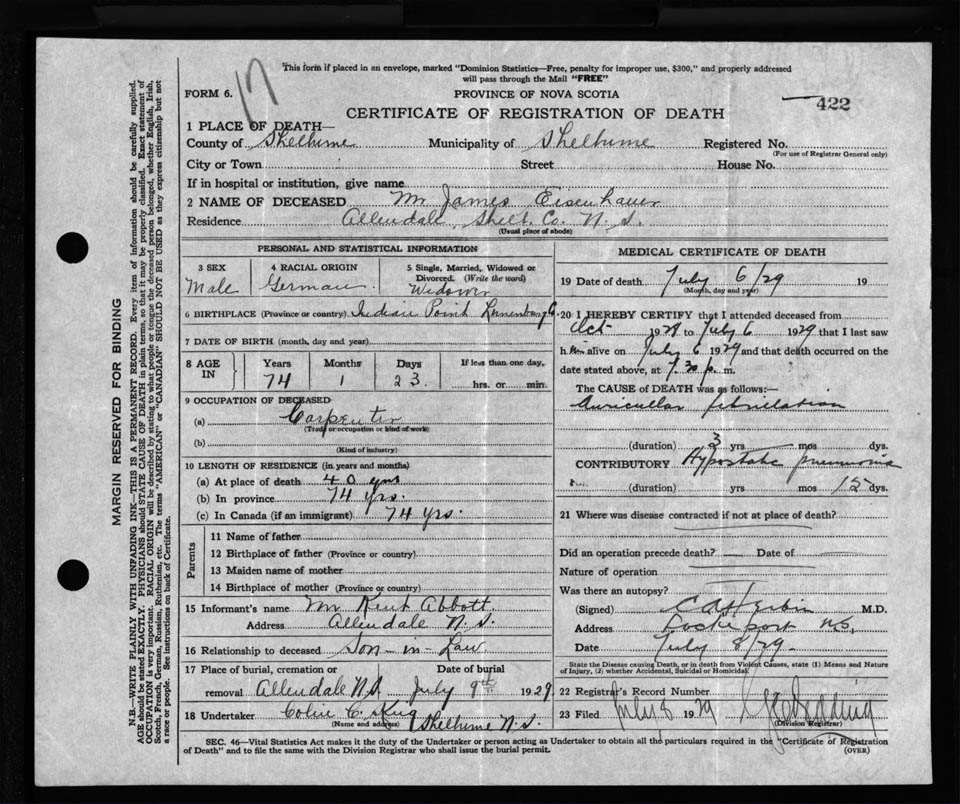 17
This form if placed in an envelope, marked "Dominion Statistics—Free, penalty for improper use, $300," and properly addressed
will pass through the Mail "FREE"
FORM 6. PROVINCE OF NOVA SCOTIA
422
CERTIFICATE OF REGISTRATION OF DEATH
1 PLACE OF DEATH—
County of Shelburne Municipality of Shelburne Registered No.
(For use of Registrar General only)
City or Town Street House No.
If in hospital or institution, give name
2 NAME OF DECEASED Mr James Eisenhauer
Residence Allendale Shelt. Co. N. S.
(Usual place of abode)
PERSONAL AND STATISTICAL INFORMATION
3 SEX 4 RACIAL ORIGIN 5 Single, Married, Widowed or
Divorced. (Write the word)
Male German Widower
6 BIRTHPLACE (Province or country) Indian Point Lunenburg Co.
7 DATE OF BIRTH (month, day and year)
8 AGE IN Years Months Days If less than one day,
74 1 23 hrs. or min.
9 OCCUPATION OF DECEASED
(a) Carpenter
(Trade or occupation or kind of work)
(b)
(Kind of industry)
10 LENGTH OF RESIDENCE (in years and months)
(a) At place of death 40 yrs
(b) In province 74 yrs.
(c) In Canada (if an immigrant) 74 yrs.
Parents
11 Name of father
12 Birthplace of father (Province or country)
13 Maiden name of mother
14 Birthplace of mother (Province or country)
15 Informant's name Mr Kent Abbott
Address Allendale N. S.
16 Relationship to deceased Son-in-Law
17 Place of burial, cremation or Date of burial
removal Allendale N.S. July 9th 1929
18 Undertaker King
(Name and address) Shelburne N. S.
MEDICAL CERTIFICATE OF DEATH
19 Date of death July 6/29 19
(Month, day and year)
20 I HEREBY CERTIFY that I attended deceased from
Oct 1928 to July 6 1929 that I last saw
h im alive on July 6 1929 and that death occurred on the
date stated above, at 7.30 p. m.
The CAUSE of DEATH was as follows:—
Auricular fibrillation
(duration) 3 yrs mos dys.
CONTRIBUTORY Hypostatic pneumonia
(duration) yrs mos 12 dys.
21 Where was disease contracted if not at place of death?
Did an operation precede death? — Date of —
Nature of operation
Was there an autopsy?
(Signed) M.D.
Address Lockeport N.S.
Date July 8/29
State the Disease causing Death, or in death from Violent Causes, state (1) Means and Nature
of Injury, (2) whether Accidental, Suicidal or Homicidal.
22 Registrar's Record Number
23 Filed July 8 1929
(Division Registrar)
SEC. 46—Vital Statistics Act makes it the duty of the Undertaker or person acting as Undertaker to obtain all the particulars required in the "Certificate of Registration
of Death" and to file the same with the Division Registrar who shall issue the burial permit. (OVER)
MARGIN RESERVED FOR BINDING
N.B.—WRITE PLAINLY WITH UNFADING INK—THIS IS A PERMANENT RECORD. Every item of information should be carefully supplied.
AGE should be stated EXACTLY. PHYSICIANS should STATE CAUSE OF DEATH in plain terms, so that it may be properly classified. Exact statement of
OCCUPATION is very important. RACIAL ORIGIN will be described by stating to what people or tongue the deceased person belonged, whether English, Irish,
Scotch, French, German, Russian, Ruthenian, etc. The terms "AMERICAN" or "CANADIAN" SHOULD NOT BE USED as they express citizenship but not
a race or people. See instructions on back of Certificate.